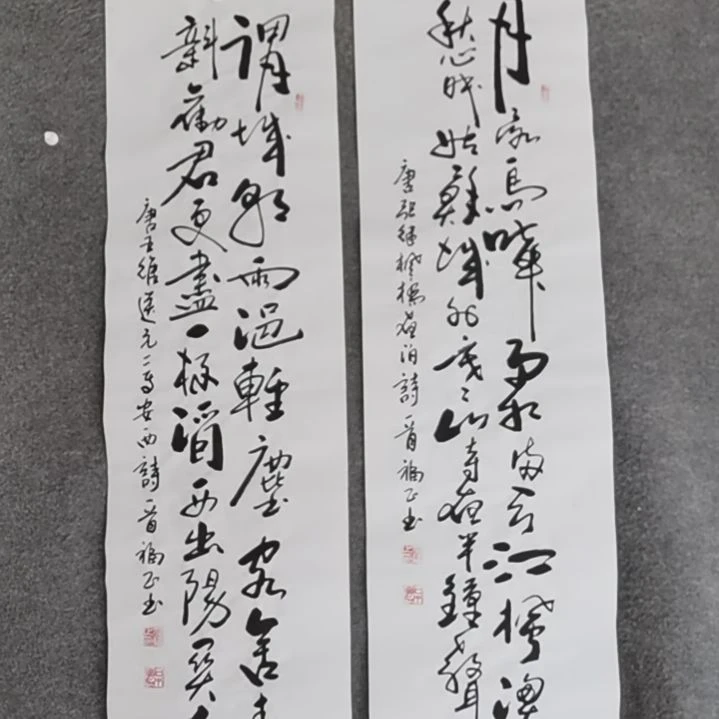 月落烏啼霜满天江楓漁
愁眠姑蘇城外寒々山寺夜半鐘聲
唐張繼楓橋夜泊詩一首福正书
渭城朝雨浥輕塵客舍青
新勸君更盡一杯酒西出陽関無
唐王維送元二使安西詩一首福正书